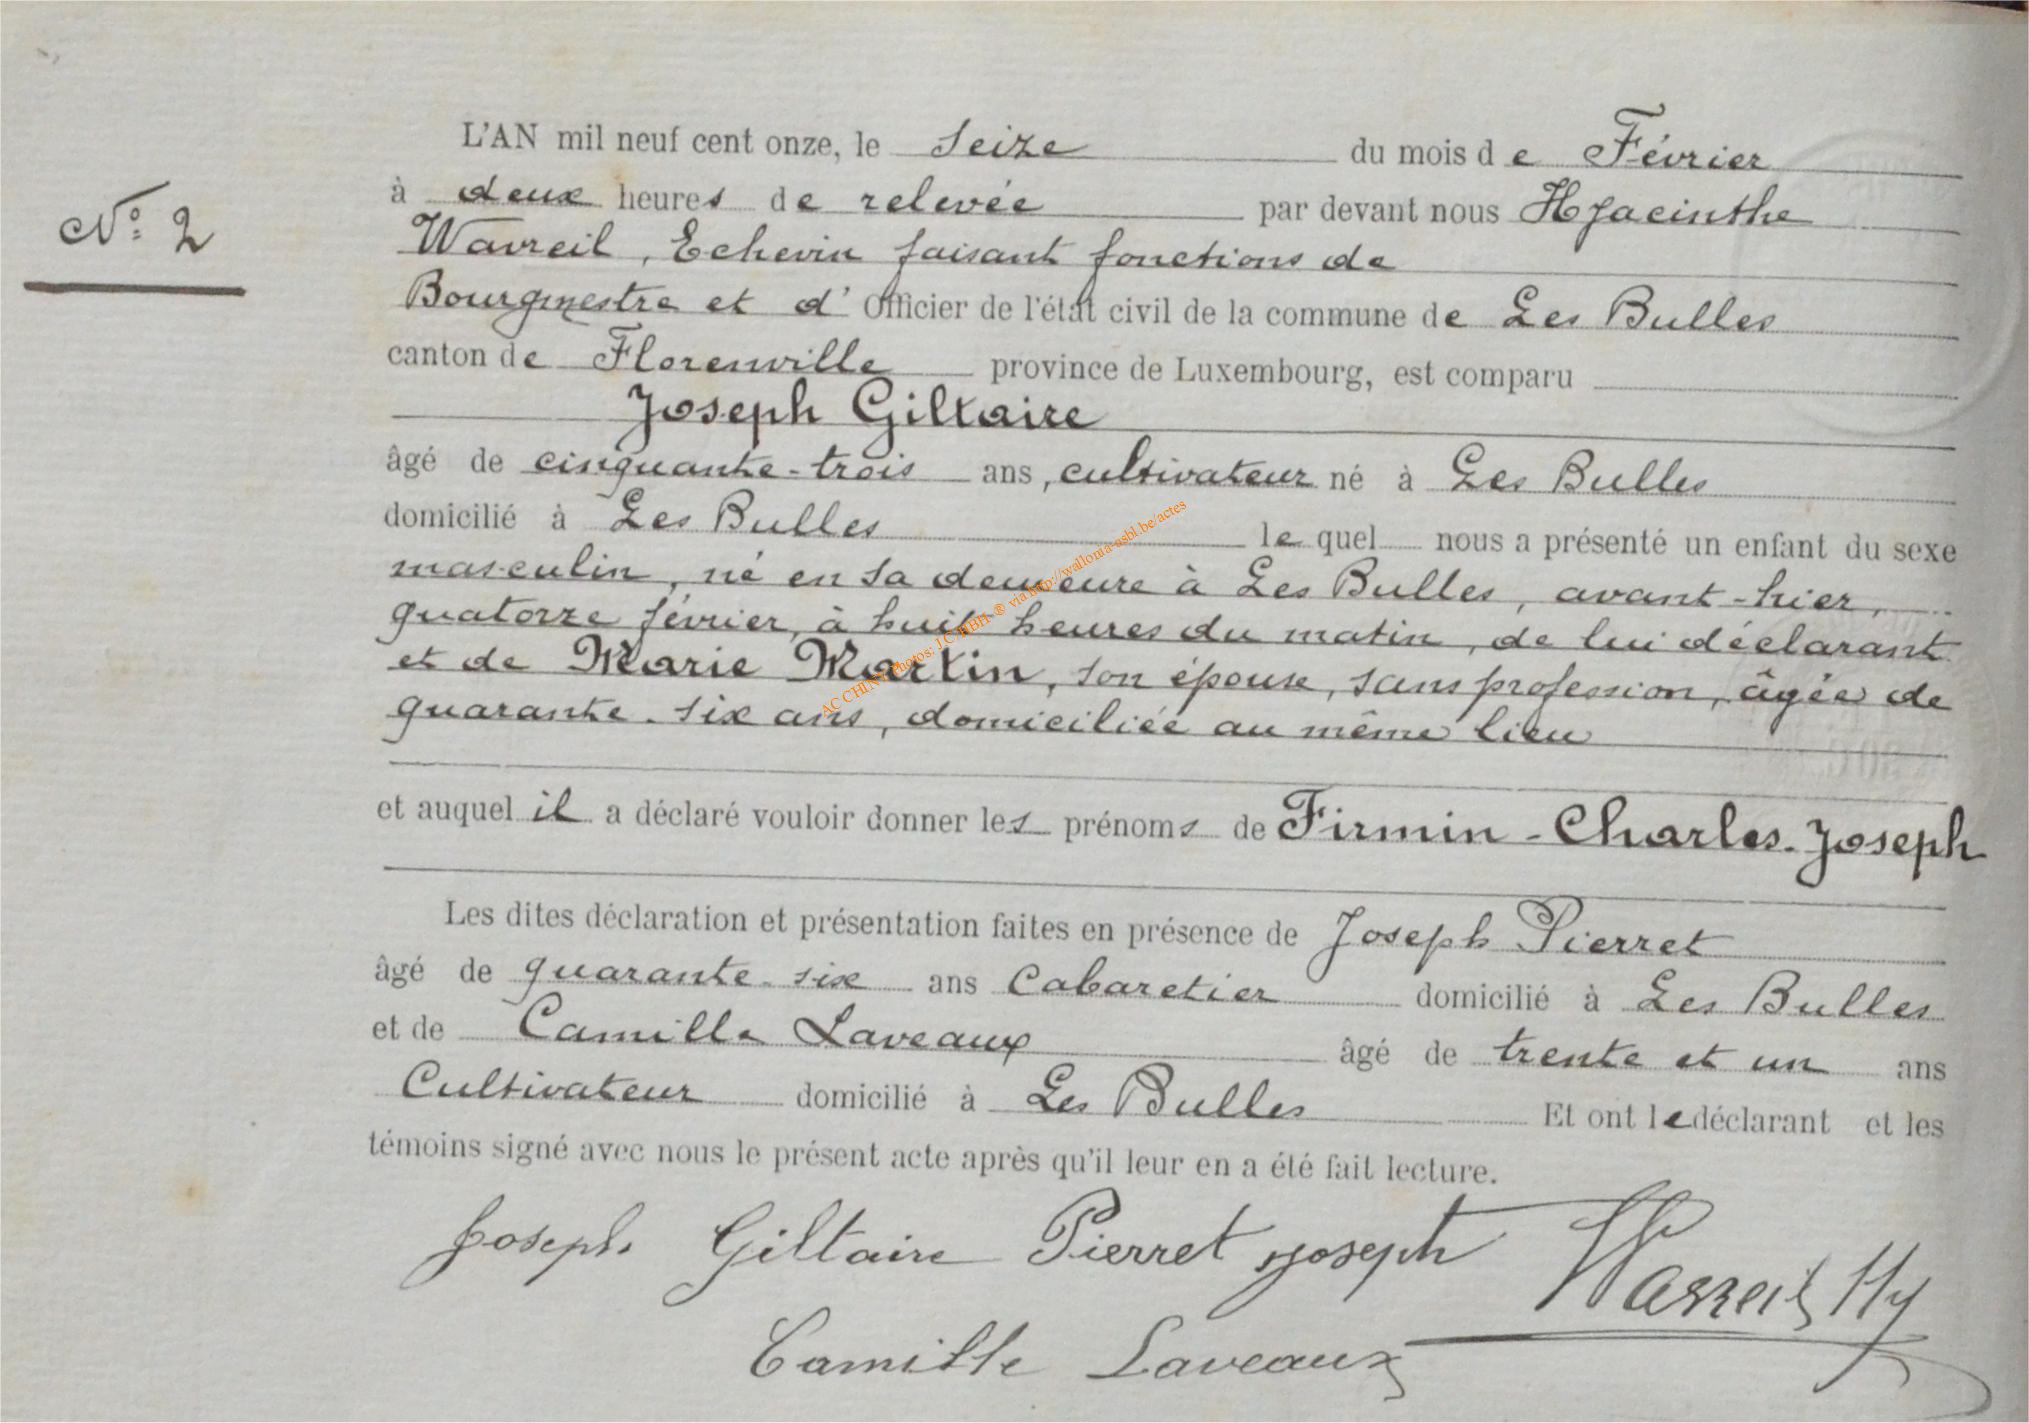 L'AN mil neuf cent onze, le Seize du mois de Février
N° 2
à deux heures de relevée par devant nous Hyacinthe
Wavreil, Echevin faisant fonctions de
Bourgmestre et d' Officier de l'état civil de la commune de Les Bulles
canton de Florenville province de Luxembourg, est comparu
Joseph Giltaire
âgé de cinquante-trois ans, cultivateur né à Les Bulles
domicilié à Les Bulles lequel nous a présenté un enfant du sexe
masculin, né en sa demeure à Les Bulles, avant-hier,
quatorze février, à huit heures du matin, de lui déclarant
et de Marie Martin, son épouse, sans profession, âgée de
quarante-six ans, domiciliée au même lieu
et auquel il a déclaré vouloir donner les prénoms de Firmin-Charles-Joseph
Les dites déclaration et présentation faites en présence de Joseph Pierret
âgé de quarante-six ans Cabaretier domicilié à Les Bulles
et de Camille Laveaux âgé de trente et un ans
Cultivateur domicilié à Les Bulles Et ont le déclarant et les
témoins signé avec nous le présent acte après qu'il leur en a été fait lecture.
Joseph Giltaire Pierret Joseph Wavreil Hy
Camille Laveaux
AC CHINY Photos: J.C. HBH ® via http://wallonia-asbl.be/actes